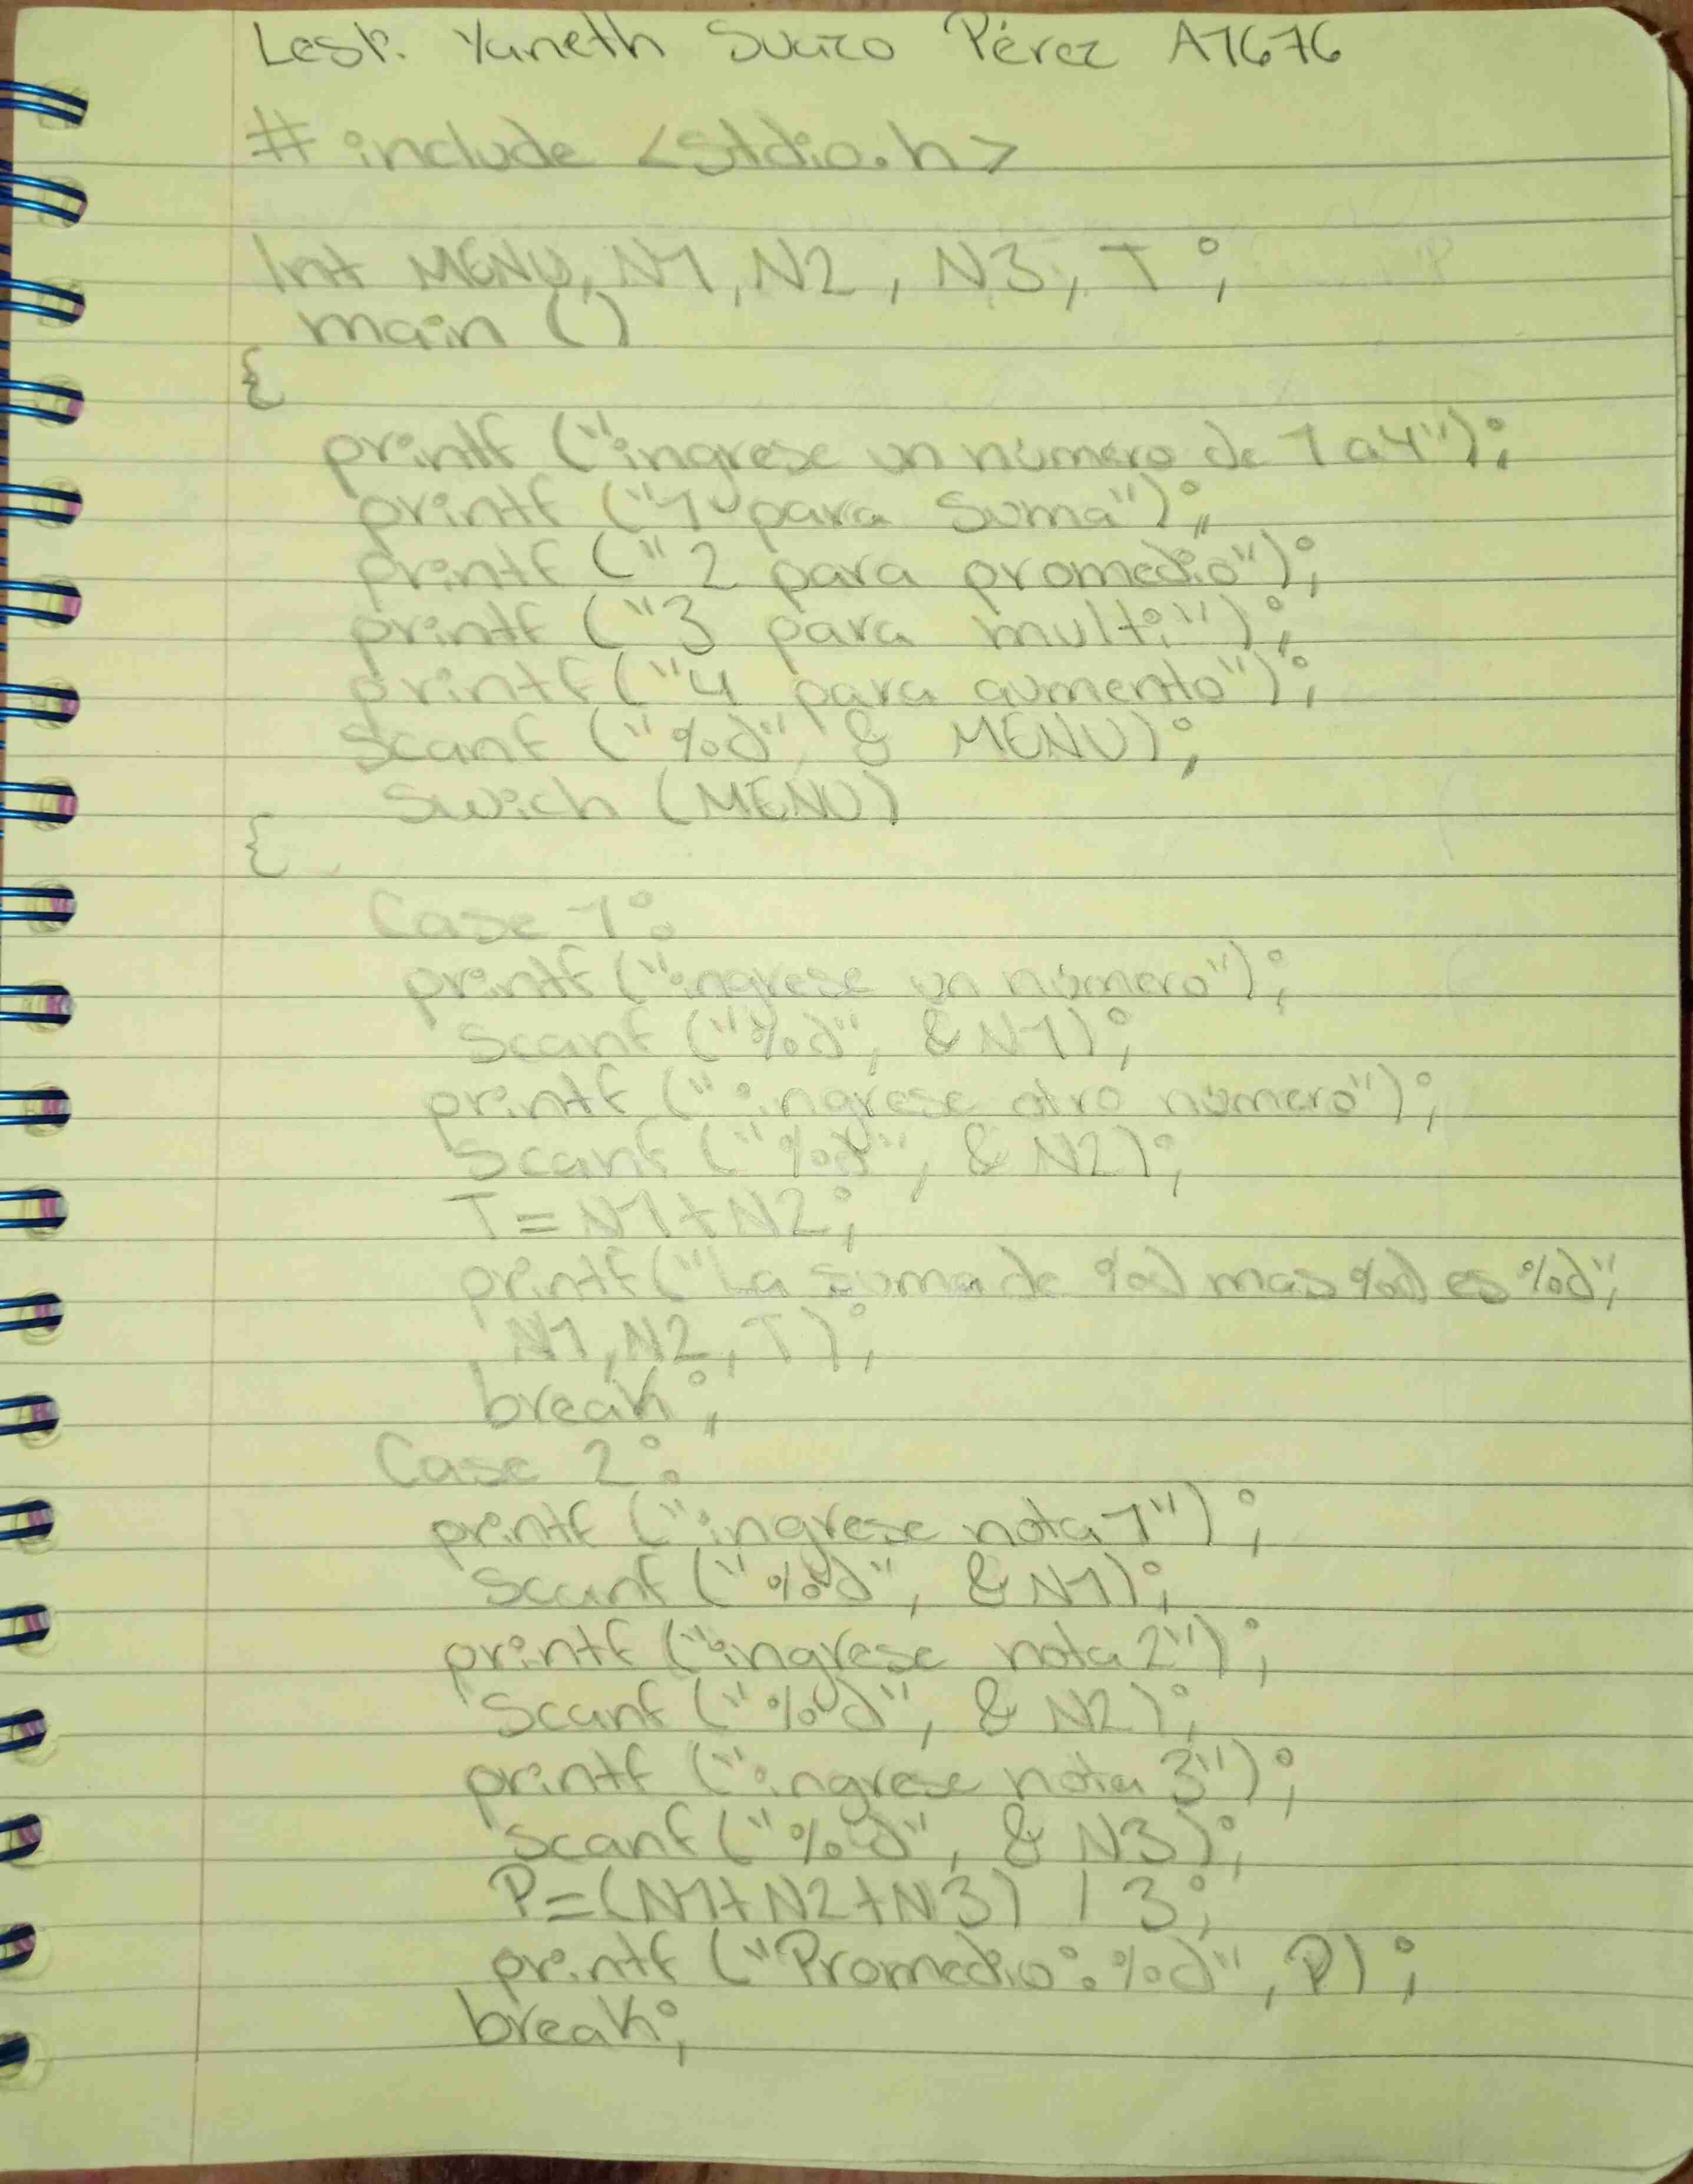 Lesl. Yaneth Suazo Pérez A1676
# include <stdio.h>
Int MENU, N1, N2, N3, T;
main ()
{
printf ("ingrese un número de 1 a 4");
printf ("1 para Suma");
printf ("2 para promedio");
printf ("3 para multi");
printf ("4 para aumento");
Scanf ("%d", & MENU);
Swich (MENU)
{
Case 1:
printf ("ingrese un número");
Scanf ("%d", & N1);
printf ("ingrese otro número");
Scanf ("%d", & N2);
T = N1 + N2;
printf ("La suma de %d mas %d es %d",
N1, N2, T);
break;
Case 2:
printf ("ingrese nota 1");
Scanf ("%d", & N1);
printf ("ingrese nota 2");
Scanf ("%d", & N2);
printf ("ingrese nota 3");
Scanf ("%d", & N3);
P = (N1 + N2 + N3) / 3;
printf ("Promedio: %d", P);
break;